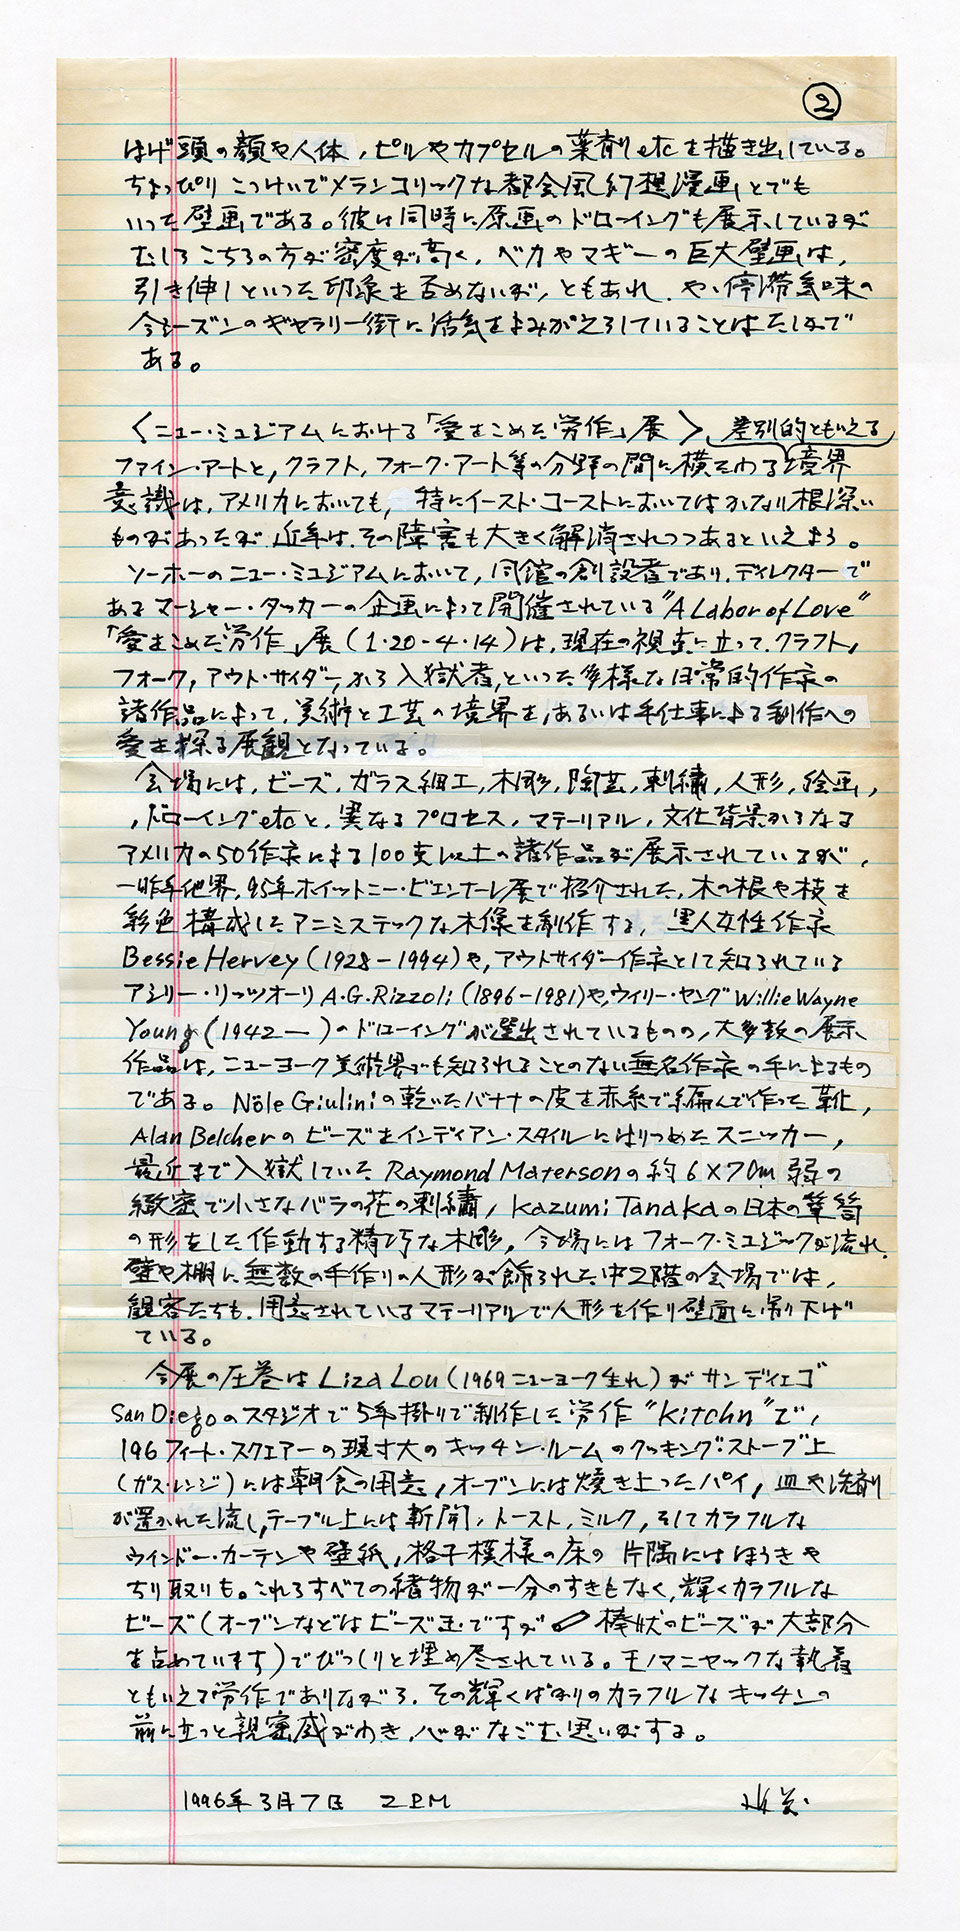 ②
はげ頭の顔や人体，ピルやカプセルの薬剤etcを描き出している。
ちょっぴりこっけいでメランコリックな都会風幻想漫画とでも
いった壁画である。彼は同時に原画のドローイングも展示しているが
むしろこちらの方が密度が高く，ベカやマギーの巨大壁画は，
引き伸しといった印象を否めないが，ともあれ，やゝ停滞気味の
今シーズンのギャラリー街に活気をよみがえらしていることはたしかで
ある。
〈ニュー・ミュジアムにおける「愛をこめた労作」展〉差別的ともいえる
ファイン・アートと，クラフト，フォーク・アート等の分野の間に横たわる境界
意識は，アメリカにおいても，特にイースト・コーストにおいてはかなり根深い
ものがあったが，近年は，その障害も大きく解消されつつあるといえよう。
ソーホーのニュー・ミュジアムにおいて，同館の創設者であり，ディレクターで
あるマーシャー・タッカーの企画によって開催されている"A Labor of Love"
「愛をこめた労作」展（1・20-4・14）は，現在の視点に立って，クラフト，
フォーク，アウト・サイダー，から入獄者，といった多様な日常的作家の
諸作品によって，美術と工芸の境界を，あるいは手仕事による制作への
愛を探る展観となっている。
会場には，ビーズ，ガラス細工，木彫，陶芸，刺繍，人形，絵画，
，ドローイングetcと，異なるプロセス，マテーリアル，文化背景からなる
アメリカの50作家による100点以上の諸作品が展示されているが，
一昨年他界，95年ホイットニー・ビエンナーレ展で紹介された，木の根や枝を
彩色構成したアニミステックな木像を制作する，黒人女性作家
Bessie Hervey（1928-1994）や，アウトサイダー作家として知られている
アシリー・リッツオーリA.G.Rizzoli（1896-1981）や，ウィリー・ヤングWillie Wayne
Young（1942 ―）のドローイングが選出されているものの，大多数の展示
作品は，ニューヨーク美術界でも知られることのない無名作家の手によるもの
である。Nöle Giuliniの乾いたバナナの皮を赤糸で編んで作った靴，
Alan Belcherのビーズをインディアン・スタイルにはりつめたスニッカー，
最近まで入獄していたRaymond Matersonの約6×7cm弱の
緻密で小さなバラの花の刺繍，Kazumi Tanakaの日本の箪笥
の形をした作動する精巧な木彫，会場にはフォーク・ミュジックが流れ，
壁や棚に無数の手作りの人形が飾られた中2階の会場では，
観客たちも，用意されているマテーリアルで人形を作り壁面に吊り下げ
ている。
今展の圧巻はLiza Lou（1969ニューヨーク生れ）がサンディエゴ
San Diegoのスタジオで5年掛りで制作した労作"Kitchn"で，
196フィート・スクエアーの現寸大のキッチン・ルームのクッキング・ストーブ上
（ガス・レンジ）には朝食の用意，オーブンには焼き上ったパイ，皿や洗剤
が置かれた流し，テーブル上には新聞，トースト，ミルク，そしてカラフルな
ウインドー・カーテンや壁紙，格子模様の床の片隅にはほうきや
ちり取りも。これらすべての績物が一分のすきもなく，輝くカラフルな
ビーズ（オーブンなどはビーズ玉ですが 棒状のビーズが大部分
を占めています）でびっしりと埋め尽されている。モノマニヤックな執着
ともいえる労作でありながら，その輝くばかりのカラフルなキッチンの
前に立つと親密感がわき，心がなごむ思いがする。
1996年3月7日　2PM